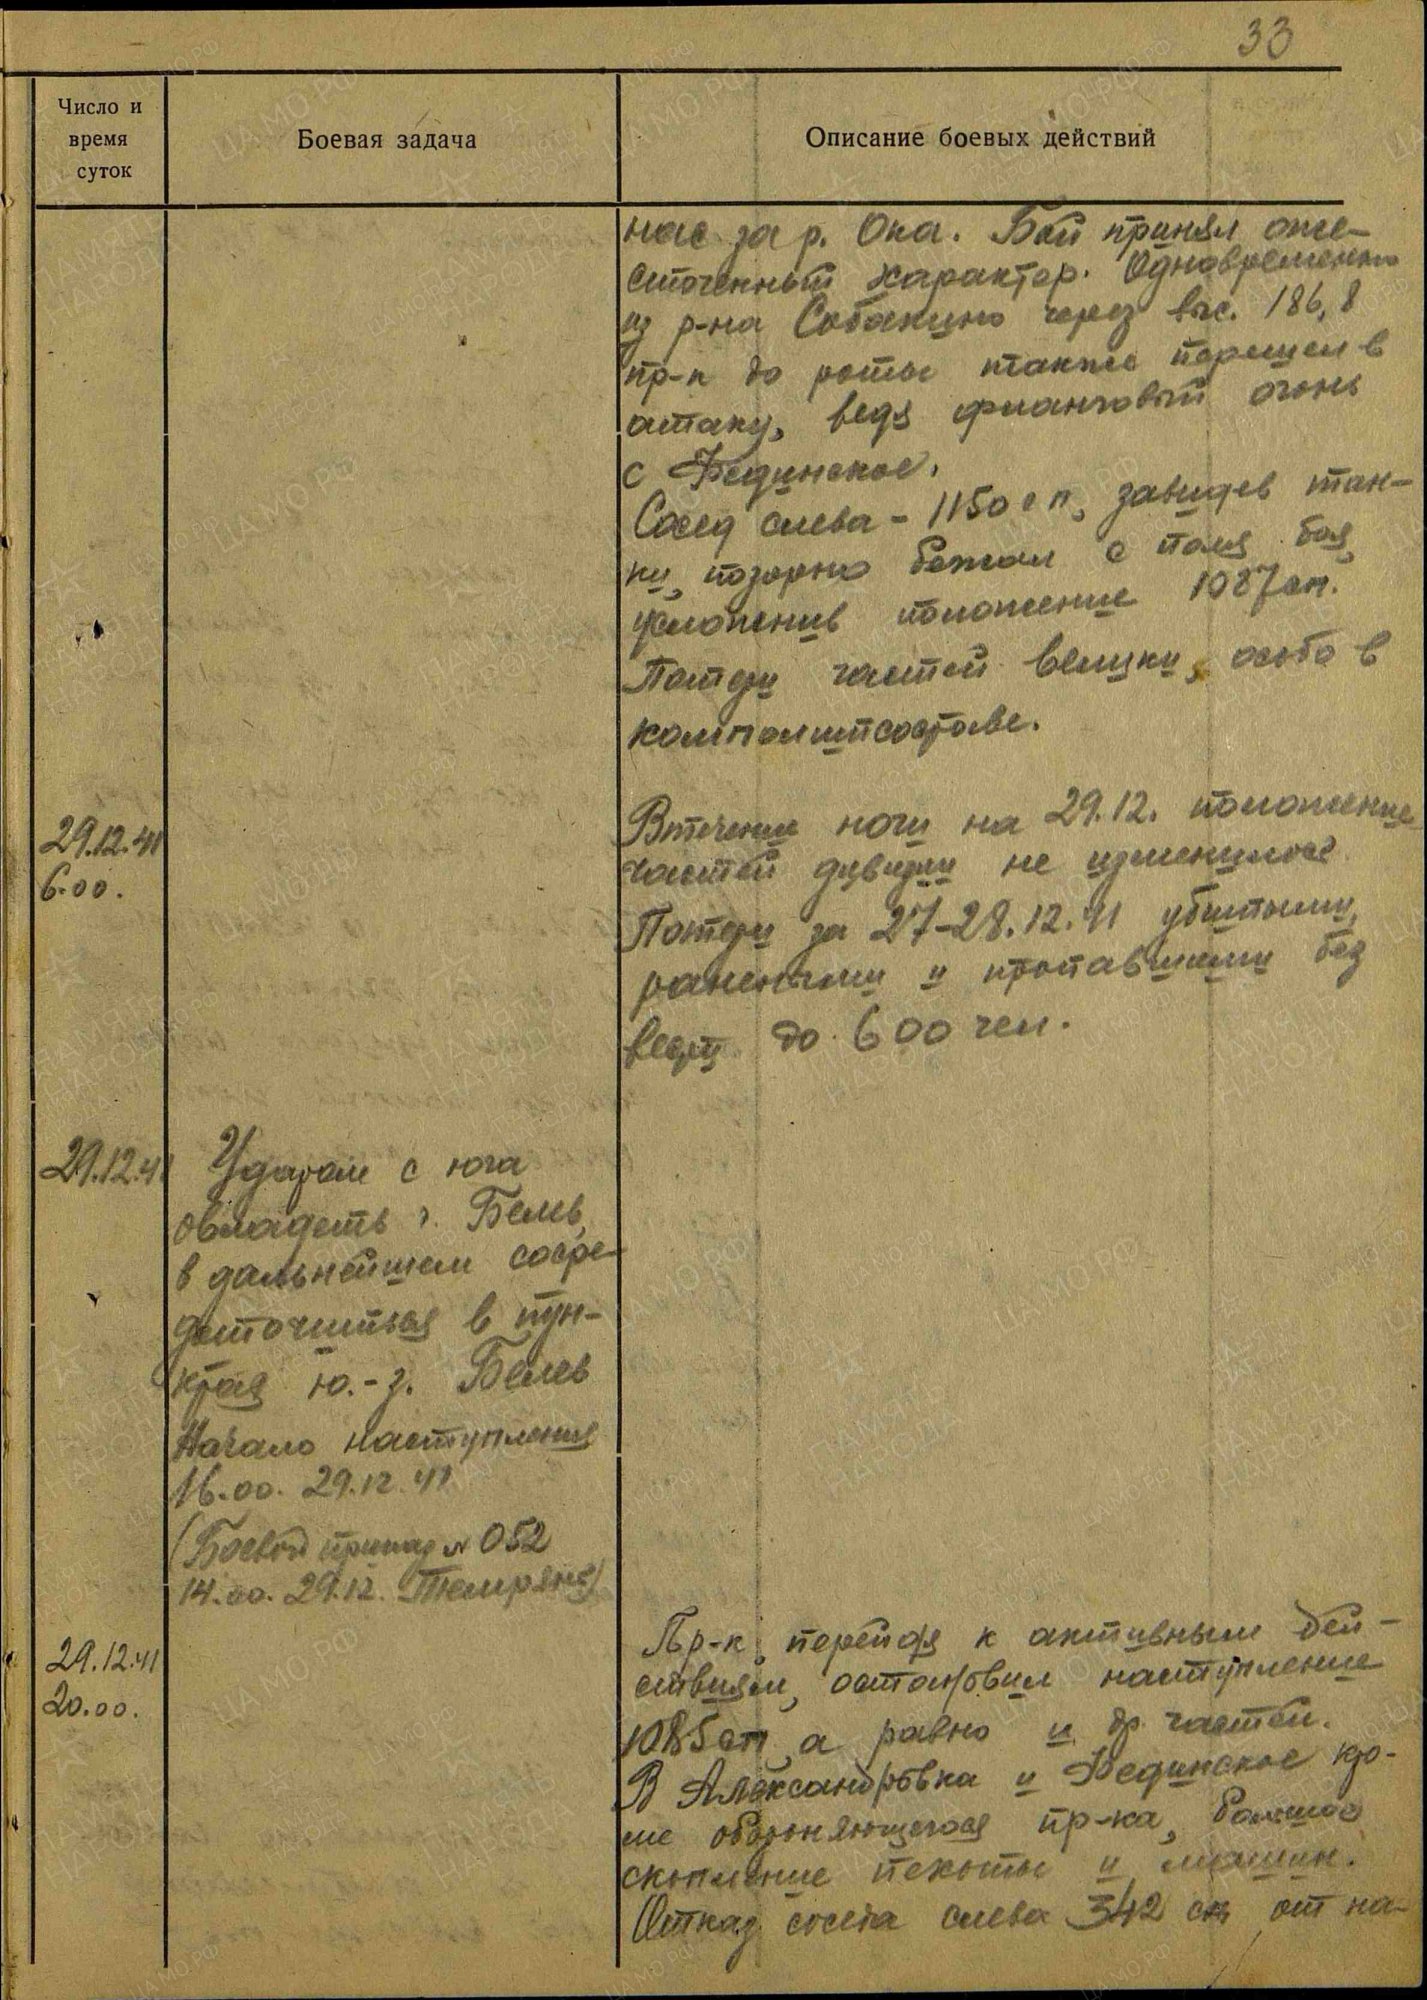 33
Число и
время
суток
Боевая задача
Описание боевых действий
нас за р. Ока. Бой принял оже-
сточенный характер. Одновременно
из р-на Собакино через выс. 186,8
пр-к до роты также перешел в
атаку, ведя фланговый огонь
с Фединское.
Сосед слева - 1150 сп, завидев тан-
ки, позорно бежал с поля боя,
усложнив положение 1087 сп.
Потери частей велики, особо в
комполитсоставе.
29.12.41
6.00.
Втечение ночи на 29.12. положение
частей дивизии не изменилось
Потери за 27-28.12.41 убитыми,
ранеными и пропавшими без
вести до 600 чел.
29.12.41
Ударом с юга
овладеть г. Белев,
в дальнейшем сосре-
доточиться в пун-
ктах ю.-з. Белев
Начало наступления
16.00. 29.12.41
(Боевой приказ № 052
14.00. 29.12. Темрянь)
29.12.41
20.00.
Пр-к, перейдя к активным дей-
ствиям, остановил наступление
1085 сп, а равно и др. частей.
В Александровка и Фединское кро-
ме обороняющегося пр-ка, большое
скопление пехоты и машин.
(Отказ соседа слева 342 сд от на-